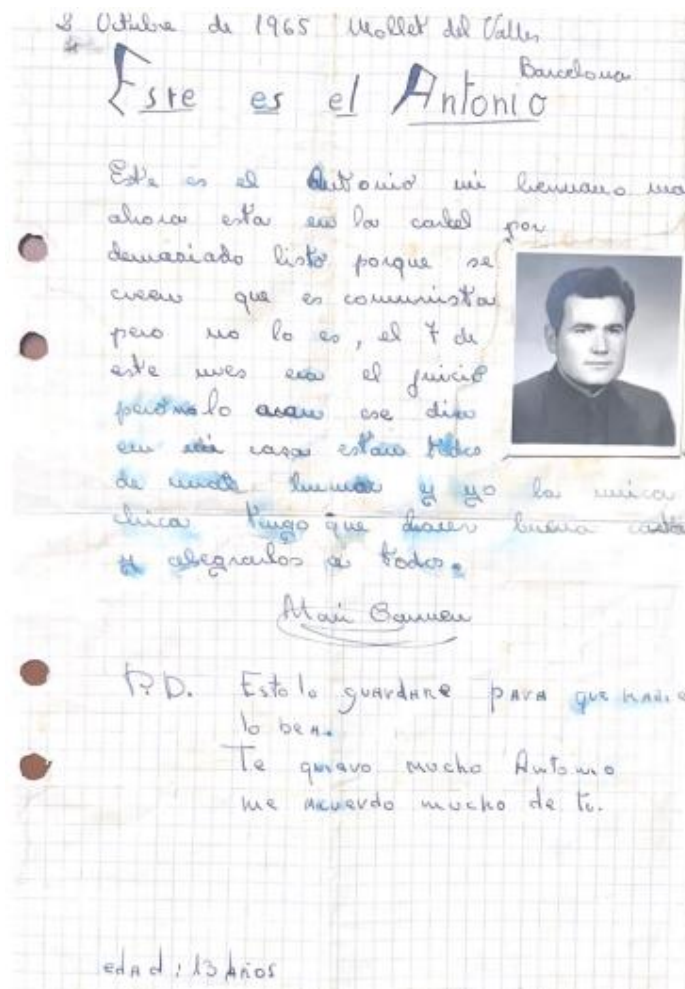 8 Octubre de 1965 Mollet del Valles
Barcelona
Este es el Antonio
Este es el Antonio mi hermano ma
ahora esta en la carcel por
demasiado listo porque se
creen que es comunista
pero no lo es, el 7 de
este mes era el juicio
pero no lo acan ese dia
en mi casa estan todos
de humor y yo la unica
chica tengo que hacer buena cara
y alegrarlos a todos.
Mari Carmen
P.D. Esto lo guardare para que nadie
lo bea.
Te quiero mucho Antonio
me acuerdo mucho de ti.
edad: 13 Años